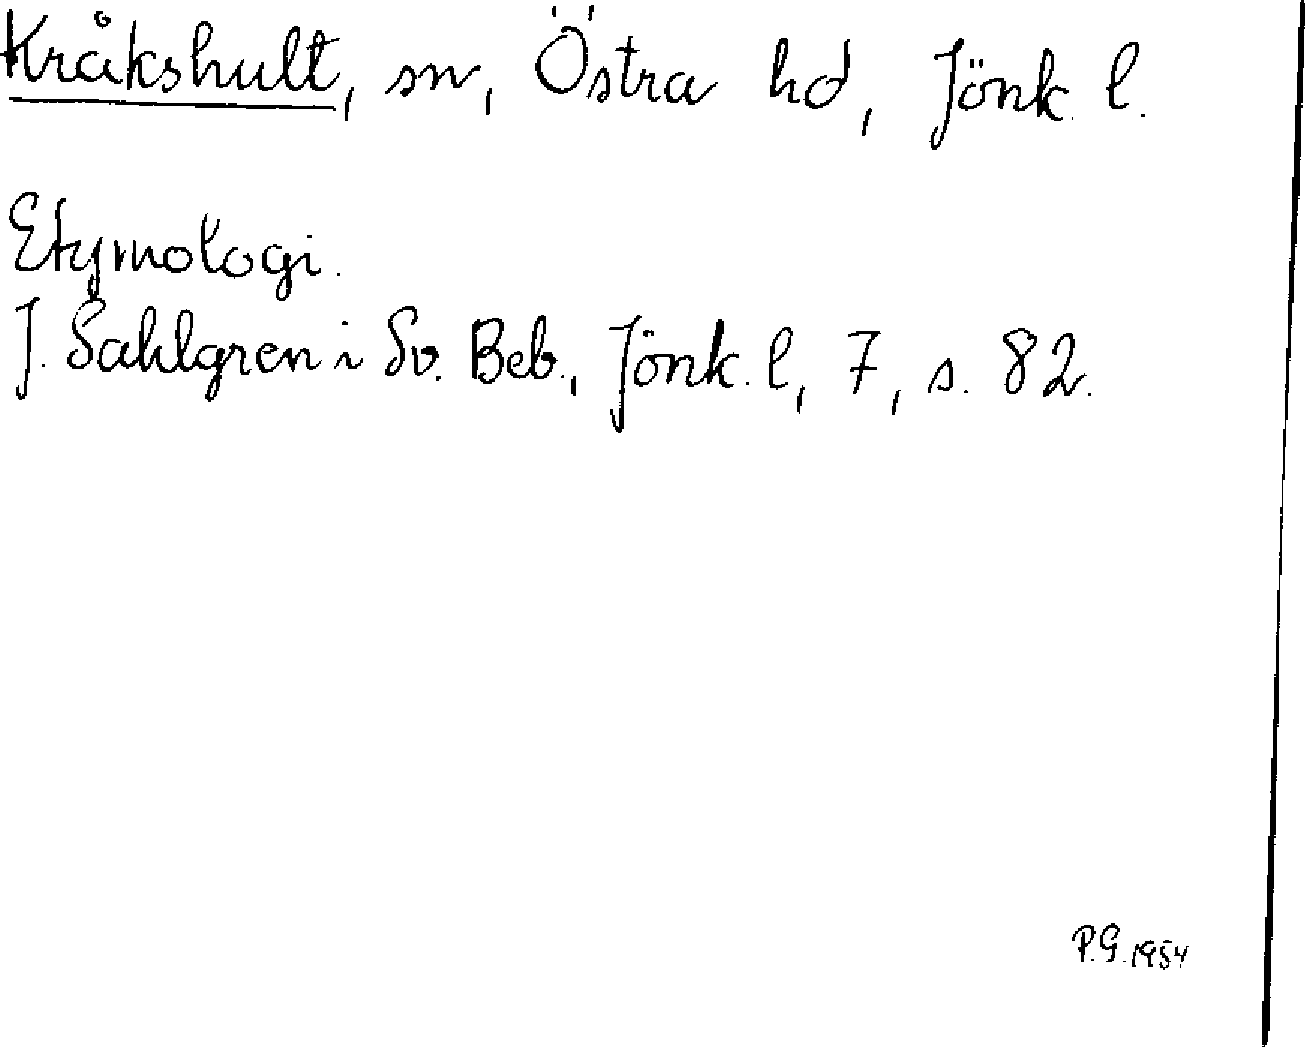 Kråkshult, sn, Östra hd, Jönk. l.
Etymologi.
J. Sahlgren i Sv. Beb., Jönk. l, 7, s. 82.
P.G. 1954